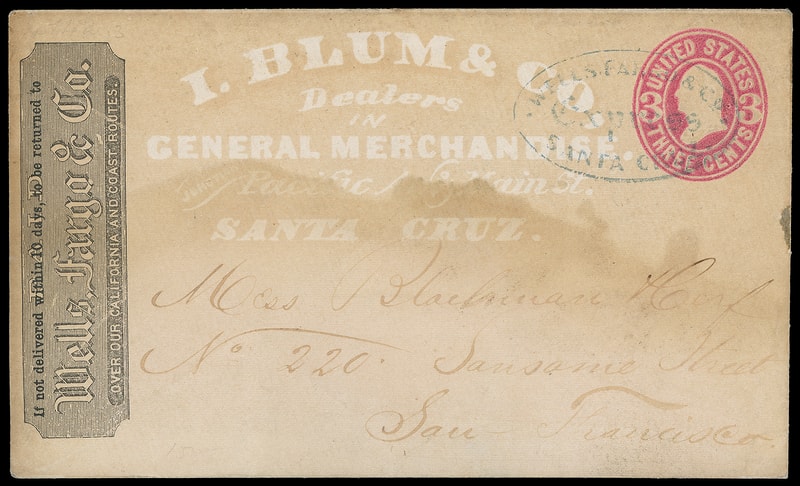 If not delivered within 10 days, to be returned to
Wells, Fargo & Co.
OVER OUR CALIFORNIA AND COAST ROUTES.
I. BLUM & CO.
Dealers
IN
GENERAL MERCHANDISE.
Pacific Main St.
SANTA CRUZ.
WELLS, FARGO & CO
EXPRESS
SANTA CRUZ
UNITED STATES
3 3
THREE CENTS
Mess Blackman
No 220. Sansome Street
San Francisco